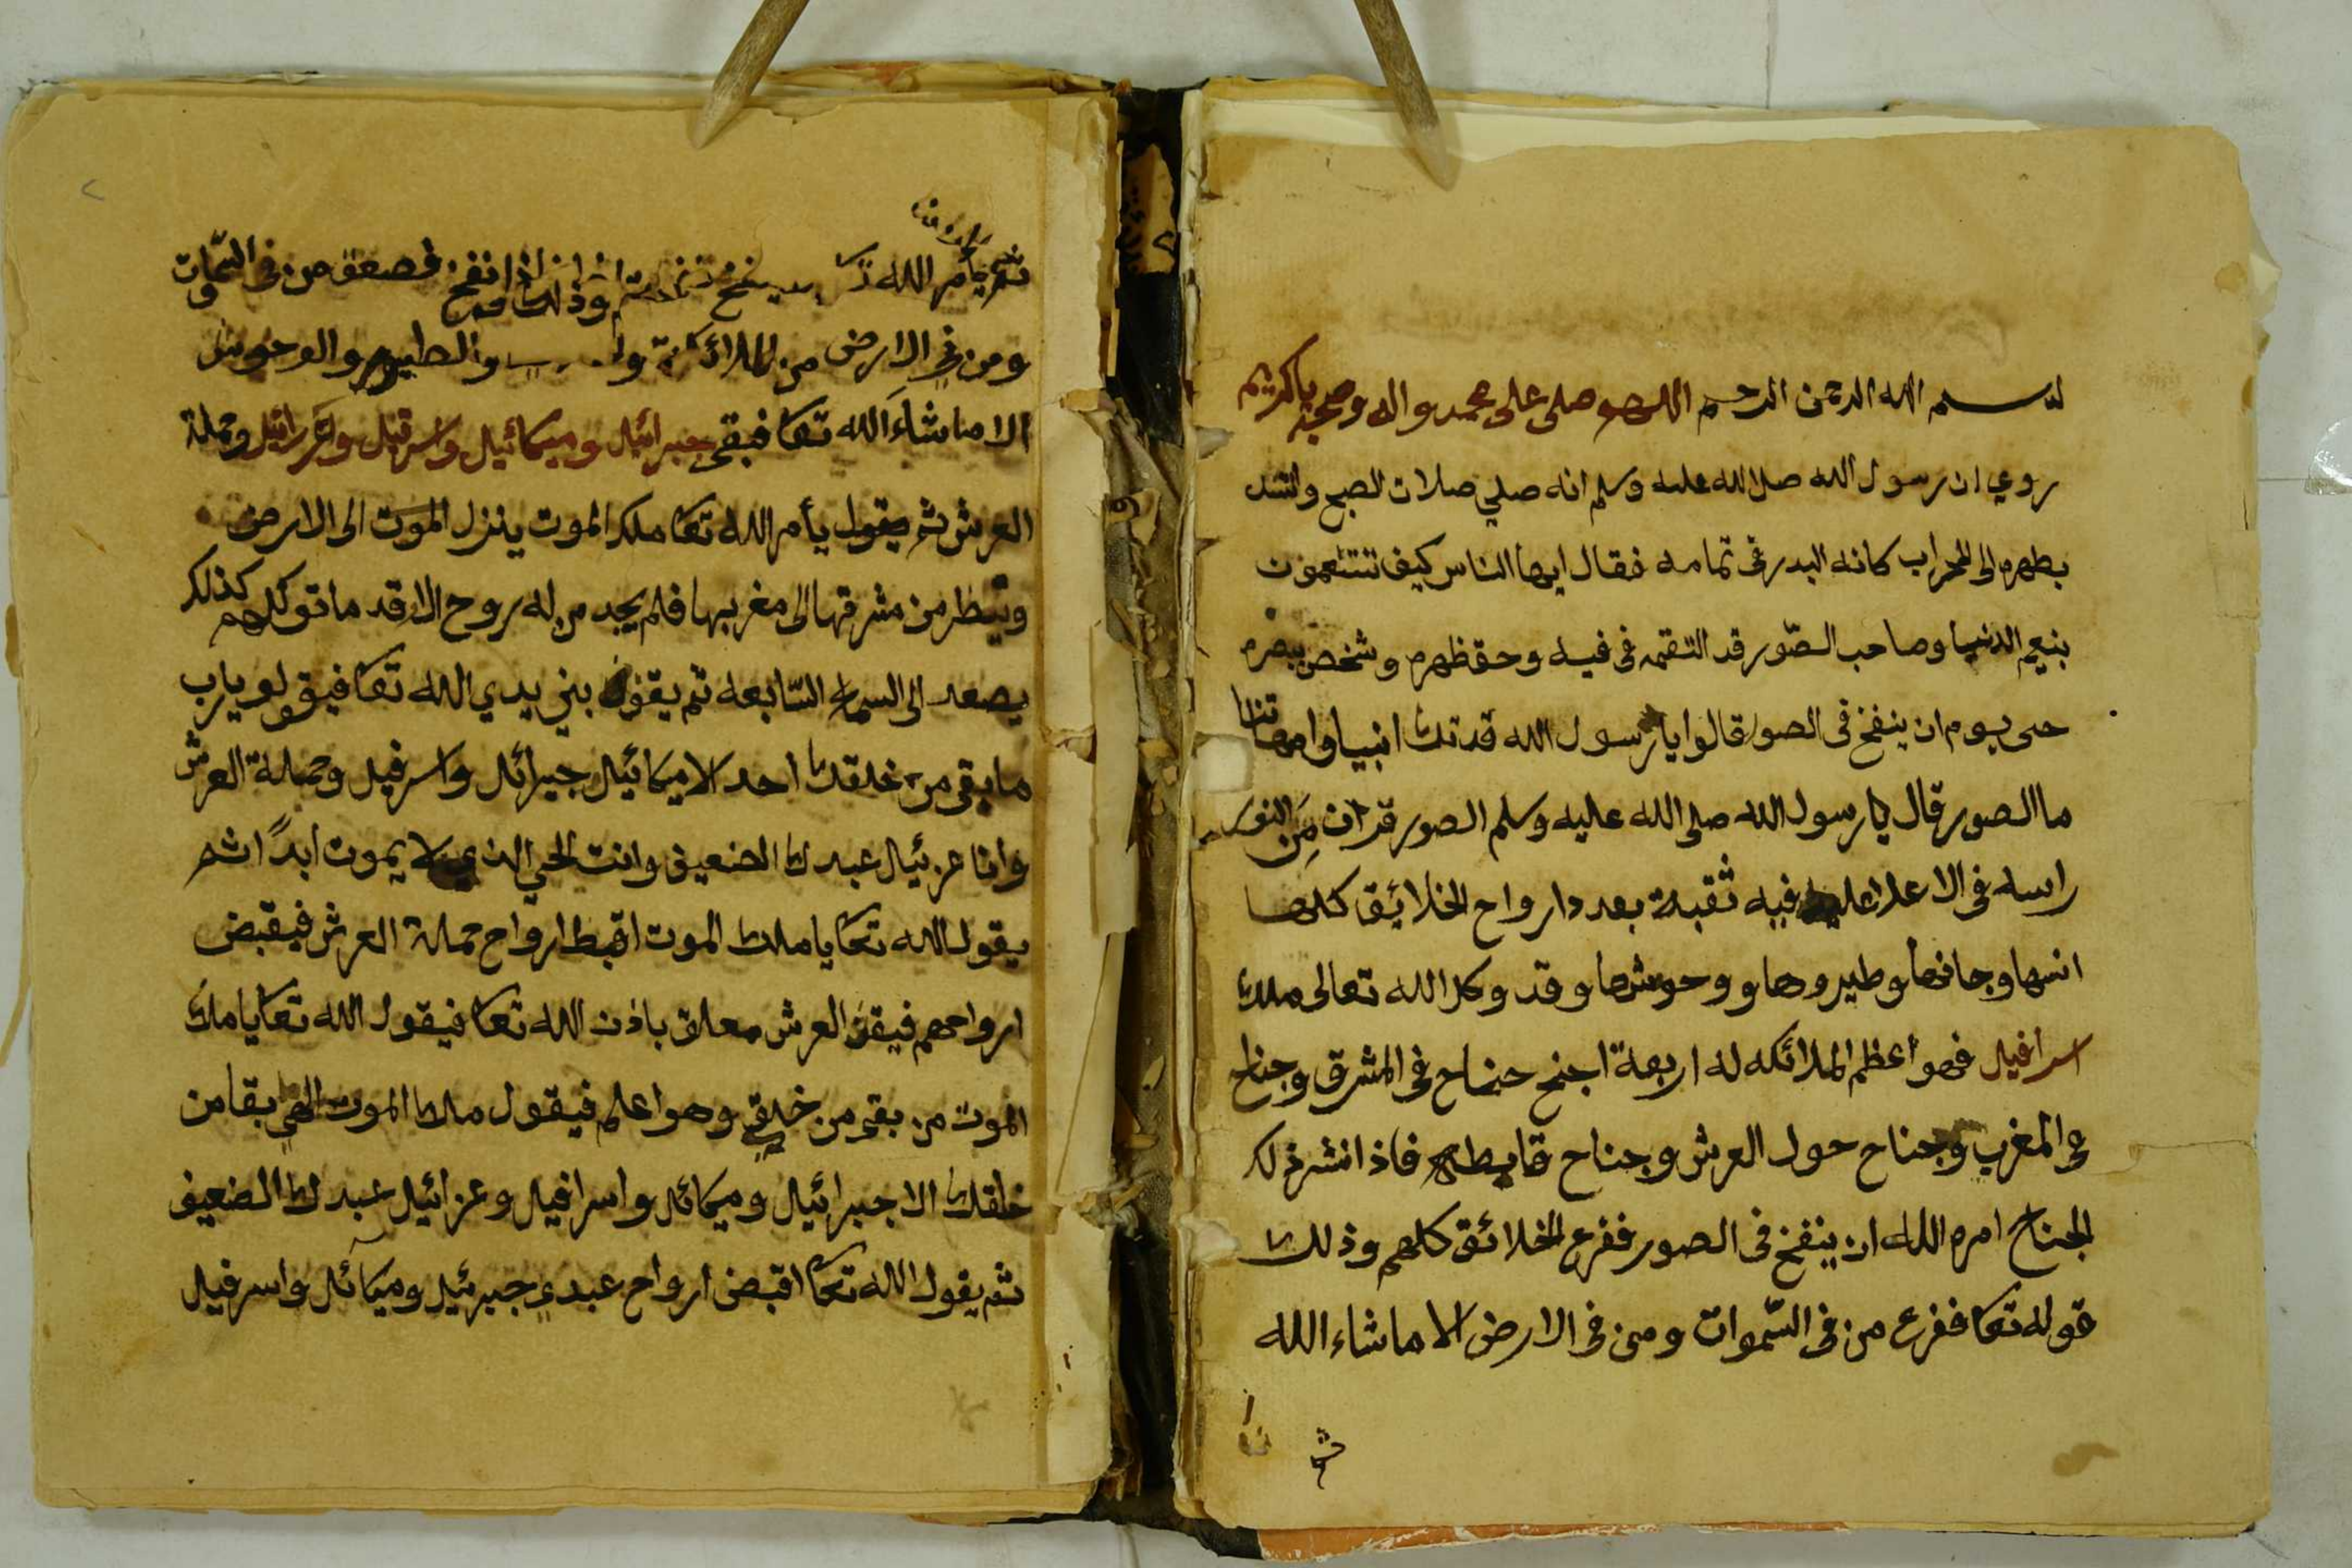 بسم الله الرحمن الرحيم اللهم صلى على محمد واله وصحبه ياكريم
روي ان رسول الله صلا الله عليه وسلم انه صلي صلات الصبح واسند
بظهره الى المحراب كانه البدر في تمامه فقال ايها الناس كيف تتنعمون
بنعيم الدنيا وصاحب الصّور قد التقمه في فيه وحقظهره وشخص ببصره
حتى يوم ان ينفخ في الصور قالوا يا رسول الله فديناك
ما الصور قال يا رسول الله صلى الله عليه وسلم الصور قرن من النور
راسه في الاعلا عليه فيه ثقبة بعدد ارواح الخلائق كلها
انسها وجانها وطيروها ووحوشها وقد وكل الله تعالى ملك
اسرافيل فهو أعظم الملائكه له اربعة اجنح جناح في المشرق وجناح
في المغرب وجناح حول العرش وجناح فاذا انشر ذلك
الجناح امره الله ان ينفخ في الصور ففزع الخلائق كلهم وذلك
قوله تعا ففزع من في السّموات ومن في الارض الا ما شاء الله
ثم
ثم يأمر الله ينفخ وذلك اذا نفخ فصعق من في السّموات
ومن في الارض من الملائكة والطيور والوحوش
الا ما شاء الله تعا فيبقى جبرائيل وميكائيل واسرفيل وعزرائيل وحملة
العرش ثم يقول يأمر الله تعا ملك الموت ينزل الموت الى الارض
وينظر من مشرقها الى مغربها فلم يجد من له روح الا قد ماتو كلهم كذلك
يصعد الى السماء السّابعه ثم يقف بين يدي الله تعا فيقولو يارب
ما بقى من خلقك احد الا ميكائيل جبرائل واسرفيل وحملة العرش
وانا عزرئيل عبدك الضعيف وانت الحي الذي لا يموت ابدًا ثم
يقول الله تعا يا ملك الموت اقبط ارواح حملة العرش فيقبض
ارواحهم فيبقى العرش معلق باذن الله تعا فيقول الله تعا يا ملك
الموت من بقى من خلقي وهو اعلم فيقول ملك الموت الهي بقا من
خلقك الا جبرائيل وميكائل واسرافيل وعزائيل عبدك الضعيف
ثم يقول الله تعا اقبض ارواح عبدي جبرئيل وميكائل واسرفيل